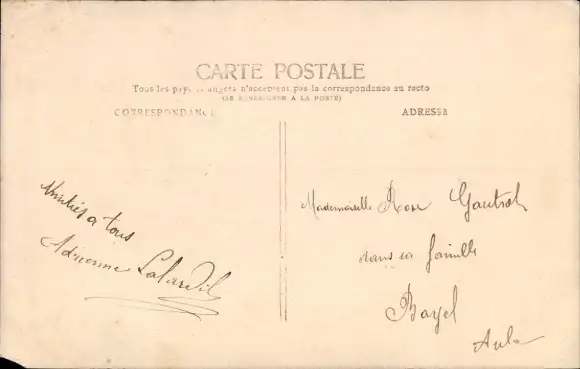 CARTE POSTALE
Tous les pays étrangers n'acceptent pas la correspondance au recto
(SE RENSEIGNER A LA POSTE)
CORRESPONDANCE
ADRESSE
Amitiés a tous
Adrienne
Mademoiselle Rose Gautrot
dans sa famille
Bayel
Aube